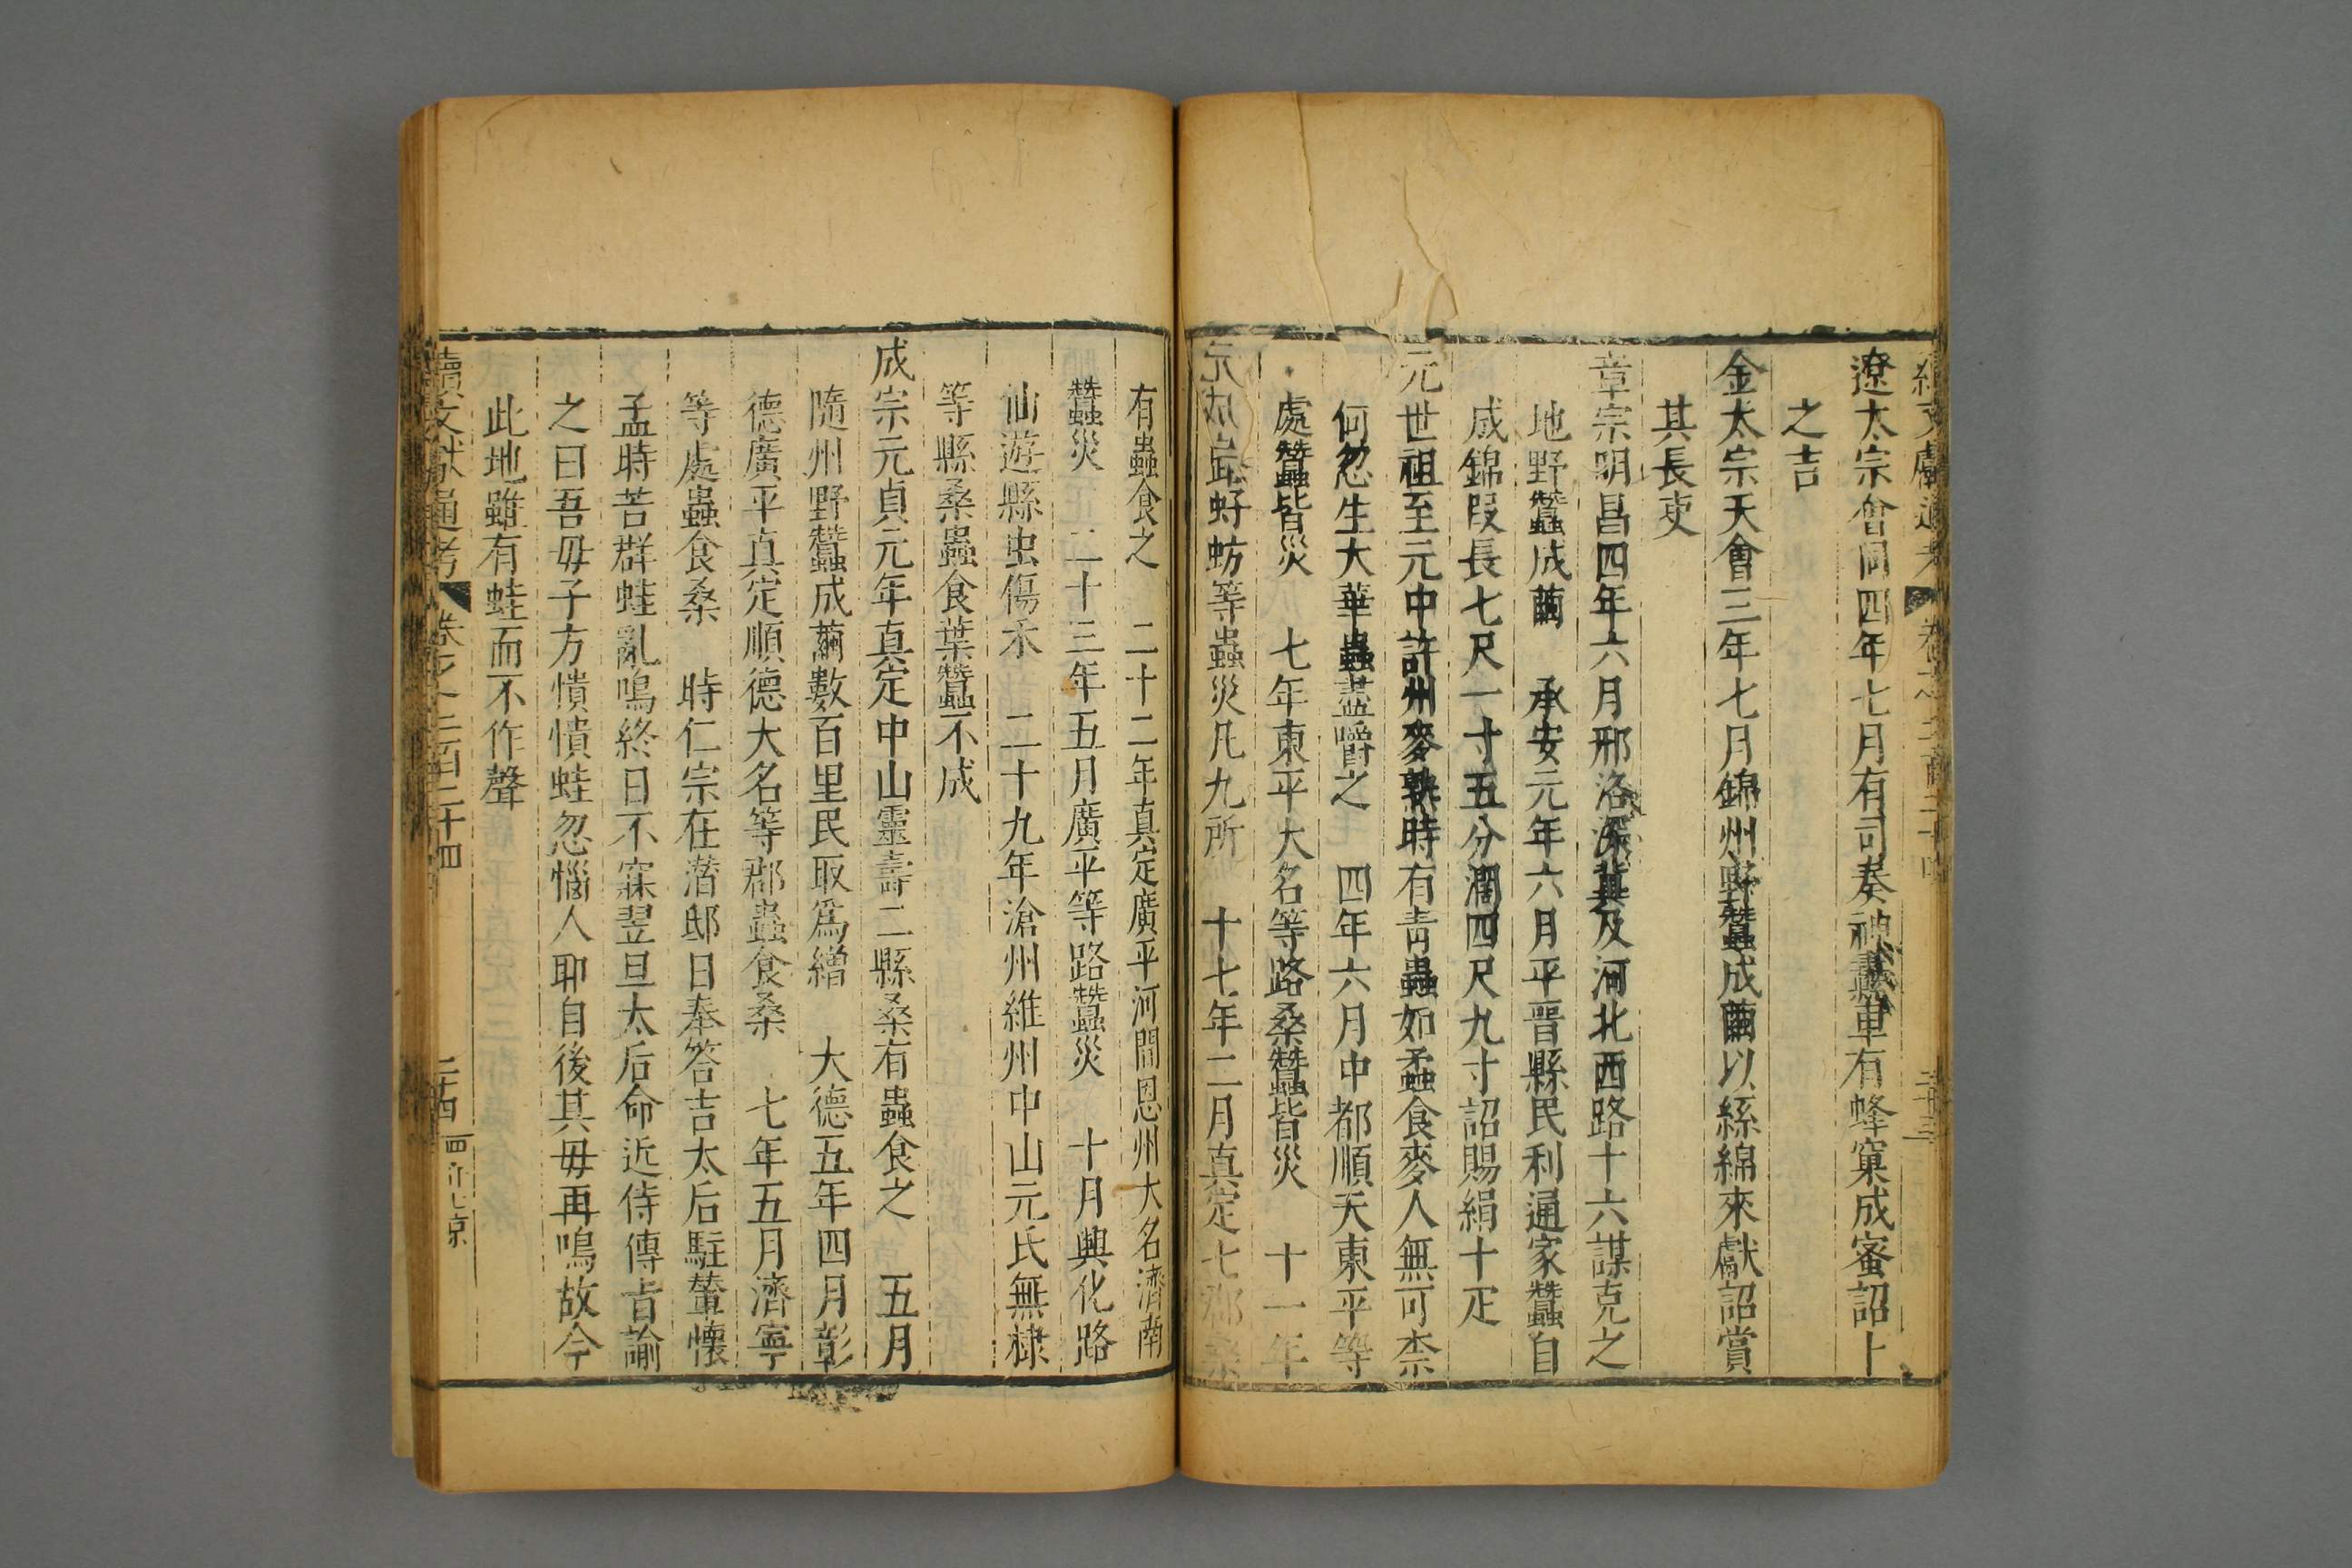 續文獻通考 卷之二百二十四 二十三
遼太宗會同四年七月有司奏神纛車有蜂窠成蜜詔卜
之吉
金太宗天會三年七月錦州野蠶成繭以絲綿來獻詔賞
其長吏
章宗明昌四年六月邢洺深冀及河北西路十六謀克之
地野蠶成繭 承安元年六月平晉縣民利通家蠶自
成錦叚長七尺一寸五分濶四尺九寸詔賜絹十疋
元世祖至元中許州麥熟時有青蟲如蟊食麥人無可柰
何忽生大華蟲盡嚼之 四年六月中都順天東平等
處蠶皆災 七年東平大名等路桑蠶皆災 十一年
蚄等蟲災凡九所 十七年二月真定七郡桑
有蟲食之 二十二年真定廣平河間恩州大名濟南
蠶災 二十三年五月廣平等路蠶災 十月興化路
仙遊縣虫傷禾 二十九年滄州維州中山元氏無棣
等縣桑蟲食葉蠶不成
成宗元貞元年真定中山靈壽二縣桑有蟲食之 五月
隨州野蠶成繭數百里民取爲繒 大德五年四月彰
德廣平真定順德大名等郡蟲食桑 七年五月濟寧
等處蟲食桑 時仁宗在潛邸日奉答吉太后駐輦懷
孟時苦群蛙亂鳴終日不寐翌旦太后命近侍傳旨諭
之曰吾毋子方憒憒蛙忽惱人耶自後其毋再鳴故今
此地雖有蛙而不作聲
續文獻通考 卷之二百二十四 二十四